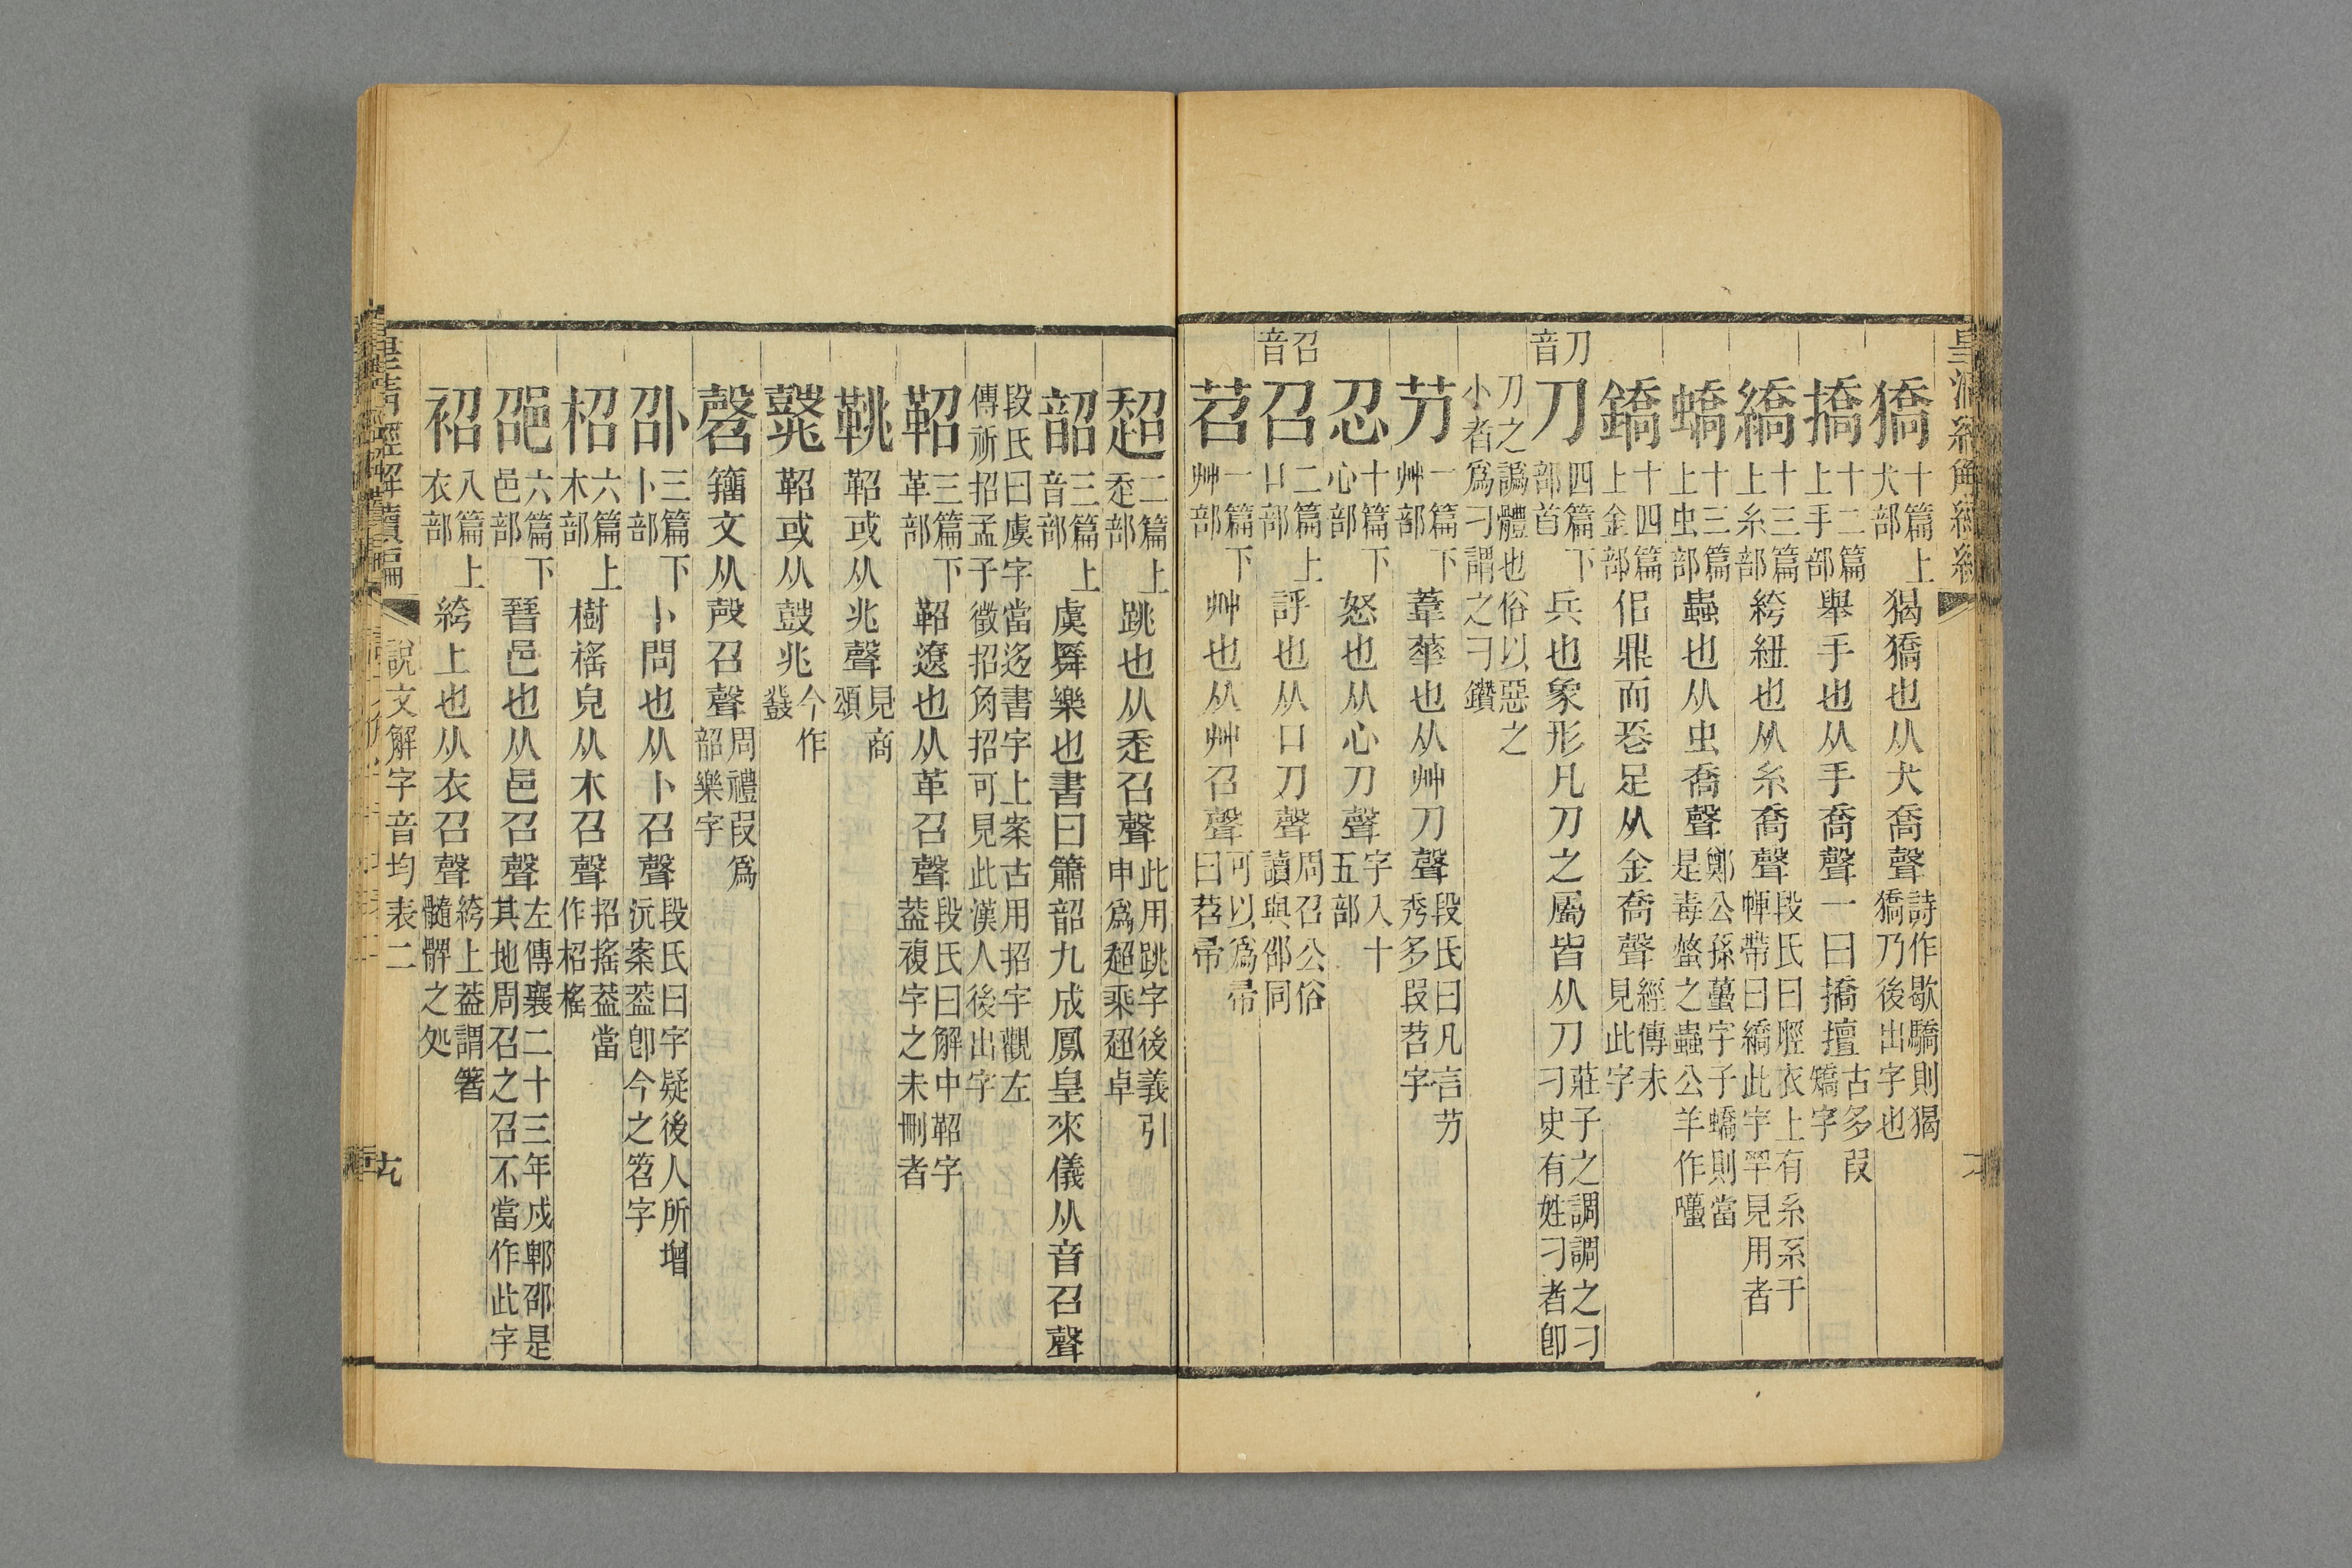 獢 十篇上犬部 猲獢也从犬喬聲 詩作歇驕則猲獢乃後出字也
撟 十二篇上手部 舉手也从手喬聲一曰撟擅 古多叚矯字
繑 十三篇上糸部 絝紐也从糸喬聲 段氏曰脛衣上有系系于㡓帶曰繑此字罕見用者
蟜 十三篇上虫部 蟲也从虫喬聲 鄭公孫蠆字子蟜則當是毒螫之蟲公羊作囆
鐈 十四篇上金部 佀鼎而長足从金喬聲 經傳未見此字
刀音
刀 四篇下部首 兵也象形凡刀之屬皆从刀 莊子之調調之刁刁史有姓刁者卽
刀之譌體也俗以惡之小者爲刁謂之刁鑽
芀 一篇下艸部 葦華也从艸刀聲 段氏曰凡言芀秀多叚苕字
忍 十篇下心部 怒也从心刀聲 字入十五部
召音
召 二篇上口部 評也从口刀聲 周召公俗讀與邵同
苕 一篇下艸部 艸也从艸召聲 可以爲帚曰苕帚
超 二篇上走部 跳也从走召聲 此用跳字後義引申爲超乘超卓
韶 三篇上音部 虞舜樂也書曰簫韶九成鳳皇來儀从音召聲
段氏曰虞字當迻書字上案古用招字觀左傳祈招孟子徵招角招可見此漢人後出字
鞀 三篇下革部 鞀遼也从革召聲 段氏曰解中鞀字葢複字之未刪者
鞉 鞀或从兆聲 見商頌
鼗 鞀或从鼓兆 今作鼗
磬 籒文从殸召聲 周禮叚爲韶樂字
卲 三篇下卜部 卜問也从卜召聲 段氏曰字疑後人所增沅案葢卽今之笤字
柖 六篇上木部 樹榣皃从木召聲 招搖葢當作柖榣
邵 六篇下邑部 晉邑也从邑召聲 左傳襄二十三年戍郫邵是其地周召之召不當作此字
袑 八篇上衣部 絝上也从衣召聲 絝上葢謂箸髓髀之処
皇清經解續編 說文解字音均表二 九